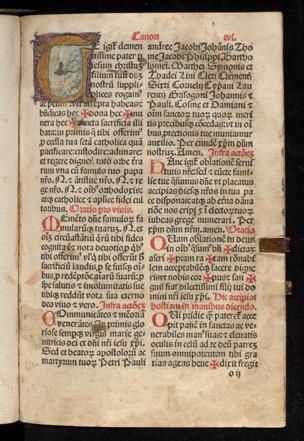 Canon
xvi.
E igit clemen
tissime pater p
iesum christuz
filium tuū dn̄z
nostrū supplī
plices rogam⁹
ac petim⁹ vti accepta habeas ⁊
bn̄dicas hec ✠ dona hec ✠ mu
nera hec ✠ sancta sacrificia illi
batain primis q̄ tibi offerim⁹
p ecclia tua sctā catholica quā
pacificare custodire adunare
et regere digneris toto orbe terra
rum vna cū famulo tuo papa
nr̄o .N. ⁊ antistite nr̄o .N. ⁊ re
ge nr̄o .N. ⁊ oīb⁹ orthodoxis
atq̄ catholice ⁊ aplice fidei cul
toribus. Oratio pro viuis.
Memento dn̄e famulorū fa
mularūq̄ tuarum .N. et
oīm circūstātiū quoꝝ tibi fides
cognita ē ⁊ nota deuotio p̄ qb⁹
tibi offerim⁹ vl̓ q̄ tibi offerūt h̄
sacrificiū laudis p se suisq̄ oī
bus p redēptōe aīarū suarū p
spe salutis ⁊ incolumitatis sue
tibiq̄ reddūt vota sua eterno
deo viuo ⁊ vero. Infra actōem
Communicātes ⁊ memoriā
venerātes In primis glo
riose semp virgīs marie ge
nitricis dei et dn̄i nr̄i iesu xp̄i.
Sed et beatorꝝ apostoloꝝ ac
martyrum tuorꝝ Petri Pauli
andree Jacobi Johānis Tho
me Jacobi Philippi Bartho
lomei Mathei Symonis et
Thadei Lini Cleti Clementis
Sixti Cornelij Cypriani Lau
rentij Grisogoni Johannis ⁊
Pauli. Cosme et Damiani ⁊
oīm sanctorꝝ tuorꝝ quorꝝ meri
tis precibusq̄ cōcedas vt in oī
bus protectionis tue muniamur
auxilio. Per eundē xp̄m dn̄m
nostrū. Amen. Infra actōem
Hanc igit̄ oblationē serui
tutis nr̄e sed ⁊ cūcte fami
lie tue qs̄umus dn̄e vt placatus
accipias diesq̄ nr̄os in tua pa
ce disponas atq̄ ab eterna dāna
tiōe nos eripi ⁊ ī electorꝝ tuorꝝ
iubeas grege numerari. Per
xp̄m dn̄m nr̄m. amen. Oratio
Quam oblationē tu deus
in oīb⁹ qs̄um⁹ bn̄ ✠ dictam
ascri ✠ ptam ra ✠ tam rōnabi
lem acceptabilēq̄ facere digne
ris vt nobis cor ✠ pus ⁊ san ✠
guis fiat dilectissimi filij tui do
mini nr̄i iesu xp̄i. Hic accipiat
hostiam in manibus dicendo.
Qui pridie q̄ pateret̄ acce
pit panē in sanctas ac ve
nerabiles man⁹ suas ⁊ eleuatis
oculis in celū ad te deū patrem
suum omnipotentem tibi gra
tias agens bene ✠ dixit fregit
o ij